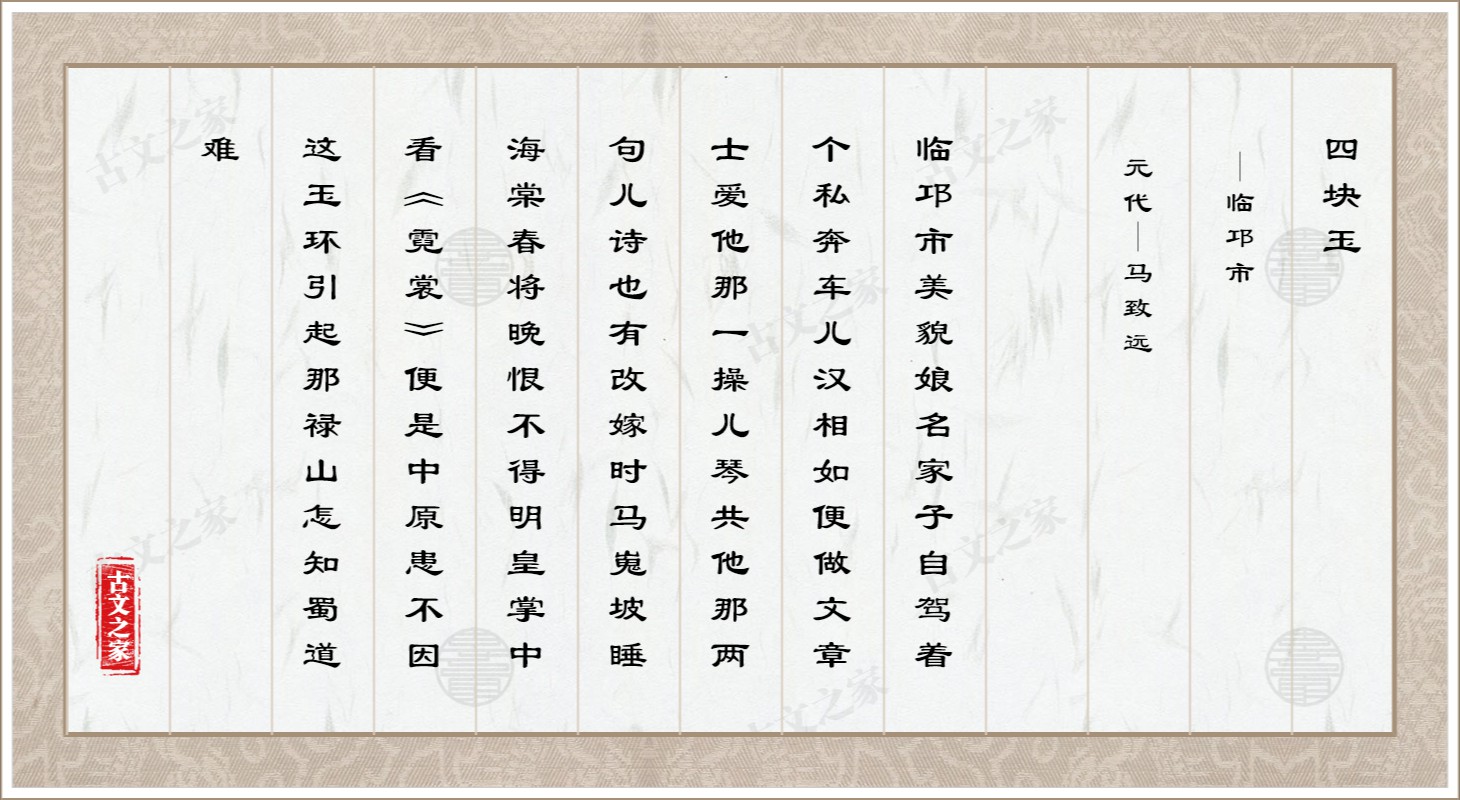 四块玉
—临邛市
元代—马致远
临邛市美貌娘名家子自驾着
个私奔车儿汉相如便做文章
士爱他那一操儿琴共他那两
句儿诗也有改嫁时马嵬坡睡
海棠春将晚恨不得明皇掌中
看《霓裳》便是中原患不因
这玉环引起那禄山怎知蜀道
难
古文之家